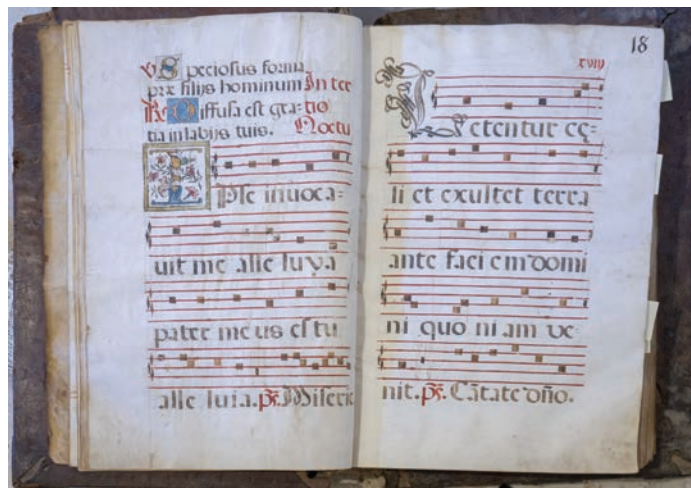 ℣ Speciosus forma
præ filijs hominum In ter
℟ Diffusa est gra= tio
tia in labijs tuis. Noctu
IPse inuoca=
uit me alle luya
pater me us es tu
alle luia. ps. Miseric
18
xviij
Letentur cę=
li et exultet terra
ante faci em domi
ni quo ni am ve=
nit. ps. Cātate dño.